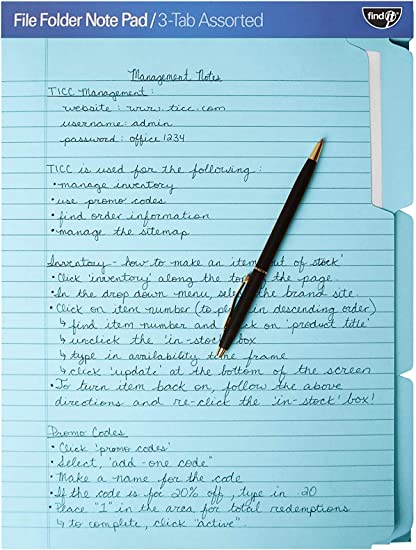 File Folder Note Pad / 3-Tab Assorted
find it
Management Notes
TICC Management:
website: www.ticc.com
username: admin
password: office 1234
TICC is used for the following:
• manage inventory
• use promo codes
• find order information
• manage the sitemap
Inventory - how to make an item out of stock'
• Click 'inventory' along the top of the page
• In the drop down menu, select the brand site
• Click on item number (to place in descending order)
↳ find item number and click on 'product title'
↳ unclick the 'in-stock' box
↳ type in availability time frame
↳ click 'update' at the bottom of the screen
• To turn item back on, follow the above
directions and re-click the 'in-stock' box!
Promo Codes
• Click 'promo codes'
• Select, 'add-one code"
• Make a name for the code
• If the code is for 20% off, type in .20
• Place "1" in the area for total redemptions
↳ to complete, click "active"